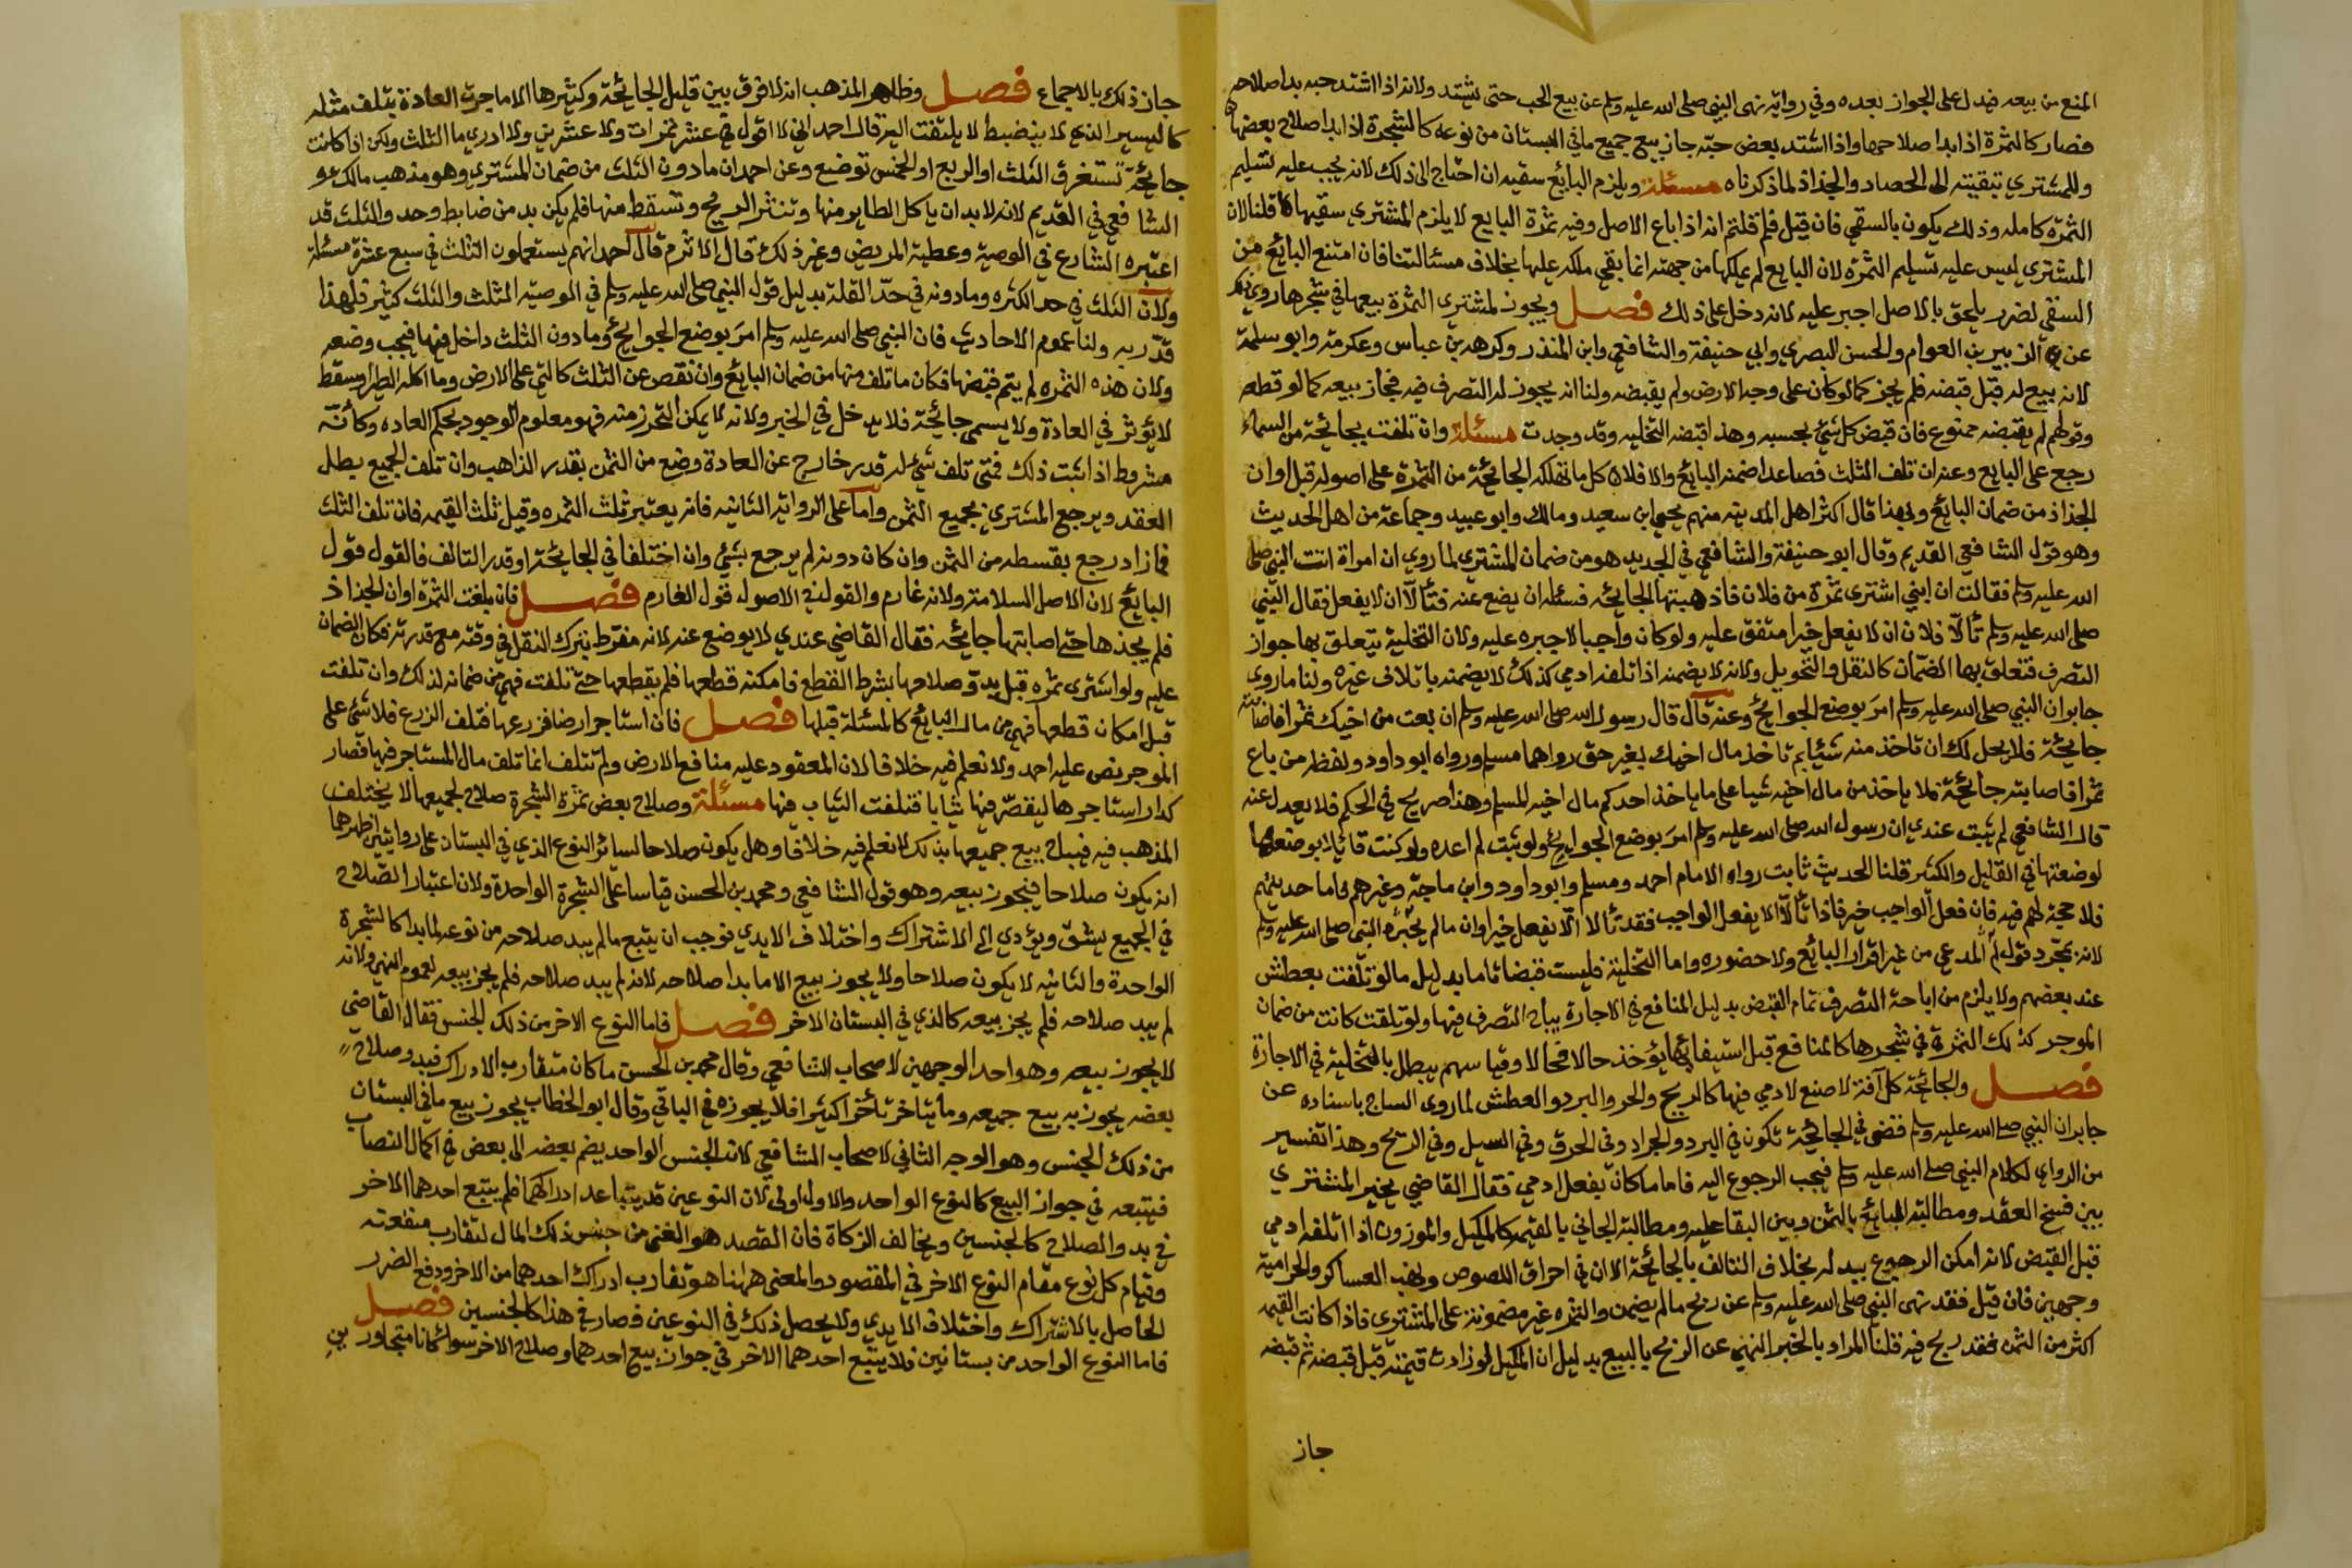 المنع من بيعه فيدل على الجواز بعده وفي رواية نهى النبي صلى الله عليه وسلم عن بيع الحب حتى يشتد ولانه اذا اشتد حبه بدا صلاحه
فصار كالثمرة اذا بدا صلاحها واذا اشتد بعض حبه جاز بيع جميع ما في البستان من نوعه كالشجرة اذا بدا صلاح بعضها
وللمشتري تبقيته الى الحصاد والجذاذ لما ذكرناه مسئلة ويلزم البائع سقيه ان احتاج الى ذلك لانه يجب عليه تسليم
الثمرة كامله وذلك يكون بالسقي فان قيل فلم قلتم انه اذا باع الاصل وفيه ثمرة البايع لا يلزم المشتري سقيها قلنا لان
المشتري ليس عليه تسليم الثمرة لان البايع لم يملكها من جهته انما بقي ملكه عليها بخلاف مسئالتنا فان امتنع البائع من
السقي لضرر يلحق بالاصل اجبر عليه لانه دخل على ذلك فصل ويجوز لمشتري الثمرة بيعها في شجرها روي
عن الزبير بن العوام والحسن البصري وابي حنيفة والشافعي وابن المنذر وكرهه بن عباس وعكرمة وابو سلمة
لانه بيع له قبل قبضه فلم يجز كما لو كان على وجه الارض ولم يقبضه ولنا انه يجوز له التصرف فيه فجاز بيعه كما لو قطعه
وقولهم لم يقبضه ممنوع فان قبض كل شئ بحسبه وهذا قبضه التخليه وقد وجدت مسئلة وان تلفت بجائحة من السماء
رجع على البايع وعنه ان تلف الثلث فصاعدا ضمنه البائع والا فلا كل ما تهلكه الجائحة من الثمرة على اصوله قبل اوان
الجذاذ من ضمان البائع وبهذا قال اكثر اهل المدينه منهم يحيى ابن سعيد ومالك وابو عبيد وجماعة من اهل الحديث
وهو قول الشافعي القديم وقال ابو حنيفة والشافعي في الجديد هو من ضمان المشتري لما روي ان امراة اتت النبي صلى
الله عليه وسلم فقالت ان ابني اشترى ثمرة من فلان فاذهبتها الجائحه فسئله ان يضع عنه فتألا ان لا يفعل فقال النبي
صلى الله عليه وسلم تألا فلان ان لا يفعل خيرا متفق عليه ولو كان واجبا لاجبره عليه ولان التخلية يتعلق بها جواز
التصرف فتعلق بها الضمان كالنقل والتحويل ولانه لا يضمنه اذا اتلفه ادمي كذلك لا يضمنه باتلاف غيره ولنا ما روى
جابر ان النبي صلى الله عليه وسلم امر بوضع الجوائح وعنه قال قال رسول الله صلى الله عليه وسلم ان بعت من اخيك ثمرا فاصابته
جائحة فلا يحل لك ان تاخذ منه شيئا بم تاخذ مال اخيك بغير حق رواهما مسلم ورواه ابو داود ولفظه من باع
ثمرا فاصابته جائحة فلا ياخذ من مال اخيه شيا على ما ياخذ احدكم مال اخيه المسلم وهذا صريح في الحكم فلا يعدل عنه
قال الشافعي لم يثبت عندي ان رسول الله صلى الله عليه وسلم امر بوضع الجوايح ولو ثبت لم اعده ولو كنت قائلا بوضعها
لوضعتها في القليل والكثير قلنا الحديث ثابت رواه الامام احمد ومسلم وابو داود وابن ماجة وغيرهم فاما حديثهم
فلا حجة لهم فيه فان فعل الواجب خير فاذا تألا الا يفعل الواجب فقد تألا الا يفعل خيرا وان مالم يجبره النبي صلى الله عليه وسلم
لانه بمجرد قول المدعي من غير اقرار البائع ولا حضوره واما التخلية فليست قبضا تاما بدليل ما لو تلفت بعطش
عند بعضهم ولا يلزم من اباحة التصرف تمام القبض بدليل المنافع في الاجارة يباح التصرف فيها ولو تلفت كانت من ضمان
الموجر كذلك الثمرة في شجرها كالمنافع قبل استيفائها يؤخذ حالا فحالا وقياسهم يبطل بالتخلية في الاجارة
فصل والجائحة كل آفة لا صنع لادمي فيها كالريح والحر والبرد والعطش لما روى الساجي باسناده عن
جابر ان النبي صلى الله عليه وسلم قضى في الجائحة تكون في البرد والجراد وفي الحرق وفي السيل وفي الريح وهذا تفسير
من الراوي لكلام النبي صلى الله عليه وسلم فيجب الرجوع اليه فاما ما كان بفعل ادمي فقال القاضي يخير المشتري
بين فسخ العقد ومطالبة البائع بالثمن وبين البقا عليه ومطالبة الجاني بالقيمة كالمكيل والموزون اذا اتلفه ادمي
قبل القبض لانه امكن الرجوع ببدله بخلاف التالف بالجائحة الا ان في احراق اللصوص ونهب العساكر والحرامية
وجهين فان قيل فقد نهى النبي صلى الله عليه وسلم عن ربح مالم يضمن والثمره غير مضمونة على المشتري فاذا كانت القيمه
اكثر من الثمن فقد ربح فيه قلنا المراد بالخبر النهي عن الربح بالبيع بدليل ان المكيل لو زادت قيمته قبل قبضه ثم قبضه
جاز
جاز ذلك بالاجماع فصل وظاهر المذهب انه لا فرق بين قليل الجائحة وكثيرها الا ما جرت العادة بتلف مثله
كاليسير الذي لا ينضبط لا يلتفت اليه قال احمد اني لا اقول في عشر ثمرات ولا عشرين ولا ادري ما الثلث ولكن اذا كانت
جائحة تستغرق الثلث او الربع او الخمس توضع وعن احمد ان ما دون الثلث من ضمان المشتري وهو مذهب مالك
الشافعي في القديم لانه لا بد ان ياكل الطاير منها وتنثر الريح وتسقط منها فلم يكن بد من ضابط وحد والثلث قد
اعتبره الشارع في الوصية وعطية المريض وغير ذلك قال الاثرم قال احمد انهم يستعملون الثلث في سبع عشرة مسئلة
ولان الثلث في حد الكثره وما دونه في حد القلة بدليل قول النبي صلى الله عليه وسلم في الوصيه الثلث والثلث كثير فلهذا
قدر به ولنا عموم الاحاديث فان النبي صلى الله عليه وسلم امر بوضع الجوائح وما دون الثلث داخل فيها فيجب وضعه
ولان هذه الثمره لم يتم قبضها فكان ما تلف منها من ضمان البائع وان نقص عن الثلث كالتي على الارض وما اكله الطير او سقط
لا يؤثر في العادة ولا يسمى جائحة فلا يدخل في الخبر ولانه لا يمكن التحرز منه فهو معلوم الوجود بحكم العاده وكأنه
مشروط اذا ثبت ذلك فمتى تلف شئ له قدر خارج عن العادة وضع من الثمن بقدر الذاهب وان تلف الجميع بطل
العقد ويرجع المشتري بجميع الثمن واما على الرواية الثانيه فانه يعتبر ثلث الثمره وقيل ثلث القيمه فان تلف الثلث
فما زاد رجع بقسطه من الثمن وان كان دونه لم يرجع بشئ وان اختلفا في الجائحة او قدر التالف فالقول قول
البائع لان الاصل السلامة ولانه غارم والقول في الاصول قول الغارم فصل فان بلغت الثمره اوان الجذاذ
فلم يجذها حتى اصابتها جائحه فقال القاضي عندي لا يوضع عنه لانه مفرط بترك النقل في وقته مع قدرته فكان الضمان
عليه ولو اشترى ثمره قبل بدو صلاحها بشرط القطع فامكنه قطعها فلم يقطعها حتى تلفت فهي من ضمانه لذلك وان تلفت
قبل امكان قطعها فهي من مال البائع كالمسئلة قبلها فصل فان استاجر ارضا فزرعها فتلف الزرع فلا شئ على
الموجر نص عليه احمد ولا نعلم فيه خلافا لان المعقود عليه منافع الارض ولم تتلف انما تلف مال المستاجر فيها فصار
كدار استاجرها ليقصر فيها ثيابا فتلفت الثياب فيها مسئلة وصلاح بعض ثمرة الشجرة صلاح لجميعها لا يختلف
المذهب فيه فيباح بيع جميعها بذلك لا نعلم فيه خلافا وهل يكون صلاحا لسائر النوع الذي في البستان على روايتين اظهرهما
انه يكون صلاحا فيجوز بيعه وهو قول الشافعي ومحمد بن الحسن قياسا على الشجرة الواحدة ولان اعتبار الصلاح
في الجميع يشق ويؤدي الى الاشتراك واختلاف الايدي فوجب ان يتبع مالم يبد صلاحه من نوعه لما بدا كالشجرة
الواحدة والثانيه لا يكون صلاحا ولا يجوز بيع الا ما بدا صلاحه لانه لم يبد صلاحه فلم يجز بيعه لعموم النهي ولانه
لم يبد صلاحه فلم يجز بيعه كالذي في البستان الاخر فصل فاما النوع الاخر من ذلك الجنس فقال القاضي
لا يجوز بيعه وهو احد الوجهين لاصحاب الشافعي وقال محمد بن الحسن ما كان متقارب الادراك فبدو صلاح
بعضه يجوز به بيع جميعه وما يتاخر تأخرا كثيرا فلا يجوزه في الباقي وقال ابو الخطاب يجوز بيع ما في البستان
من ذلك الجنس وهو الوجه الثاني لاصحاب الشافعي لانه الجنس الواحد يضم بعضه الى بعض في اكمال النصاب
فيتبعه في جواز البيع كالنوع الواحد والاول اولى لان النوعين قد يتباعد ادراكهما فلم يتبع احدهما الاخر
في بدو الصلاح كالجنسين ويخالف الزكاة فان القصد هو الغنى من جنس ذلك المال لتقارب منفعته
وقيام كل نوع مقام النوع الاخر في المقصود والمعنى ههنا هو تقارب ادراك احدهما من الاخر ودفع الضرر
الحاصل بالاشتراك واختلاف الايدي ولا يحصل ذلك في النوعين فصار في هذا كالجنسين فصل
فاما النوع الواحد من بستانين فلا يتبع احدهما الاخر في جواز بيع احدهما وصلاح الاخر سواء كانا متجاورين